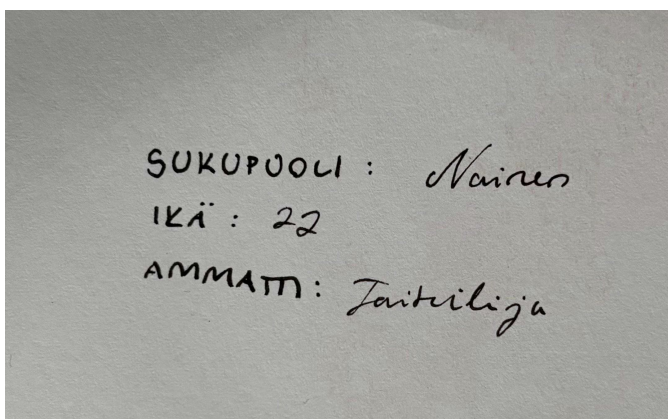 SUKUPUOLI : Nainen
IKÄ : 22
AMMATTI : Taiteilija